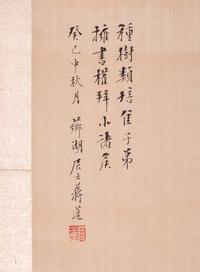 種樹類培佳子弟
擁書權拜小諸侯
癸巳中秋月 薌湖居士蔣蓮